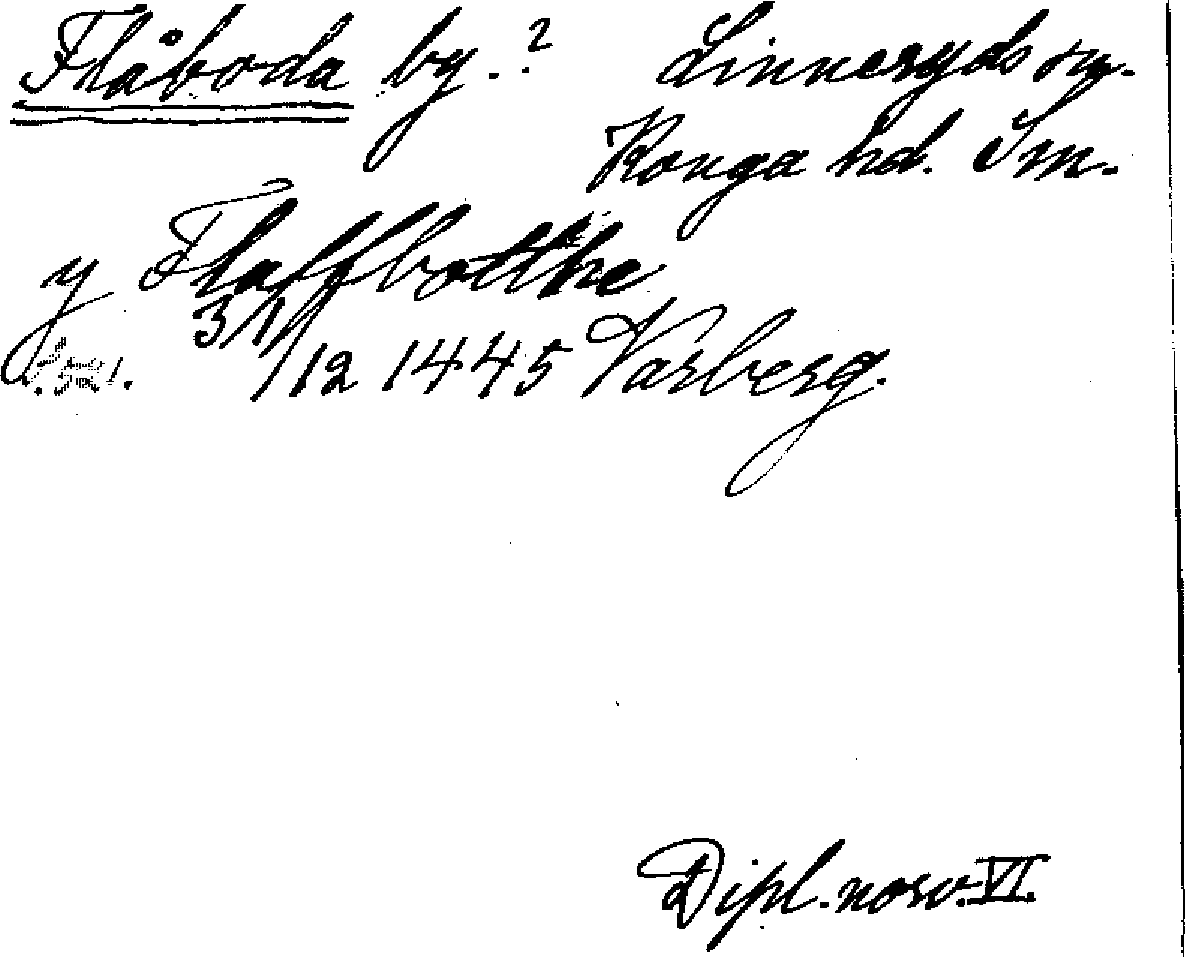 Flåboda by.? Linneryds sn.
Konga hd. Sm.
y Flaffbotthe
31/12 1445 Varberg.
Dipl. norv. VI.